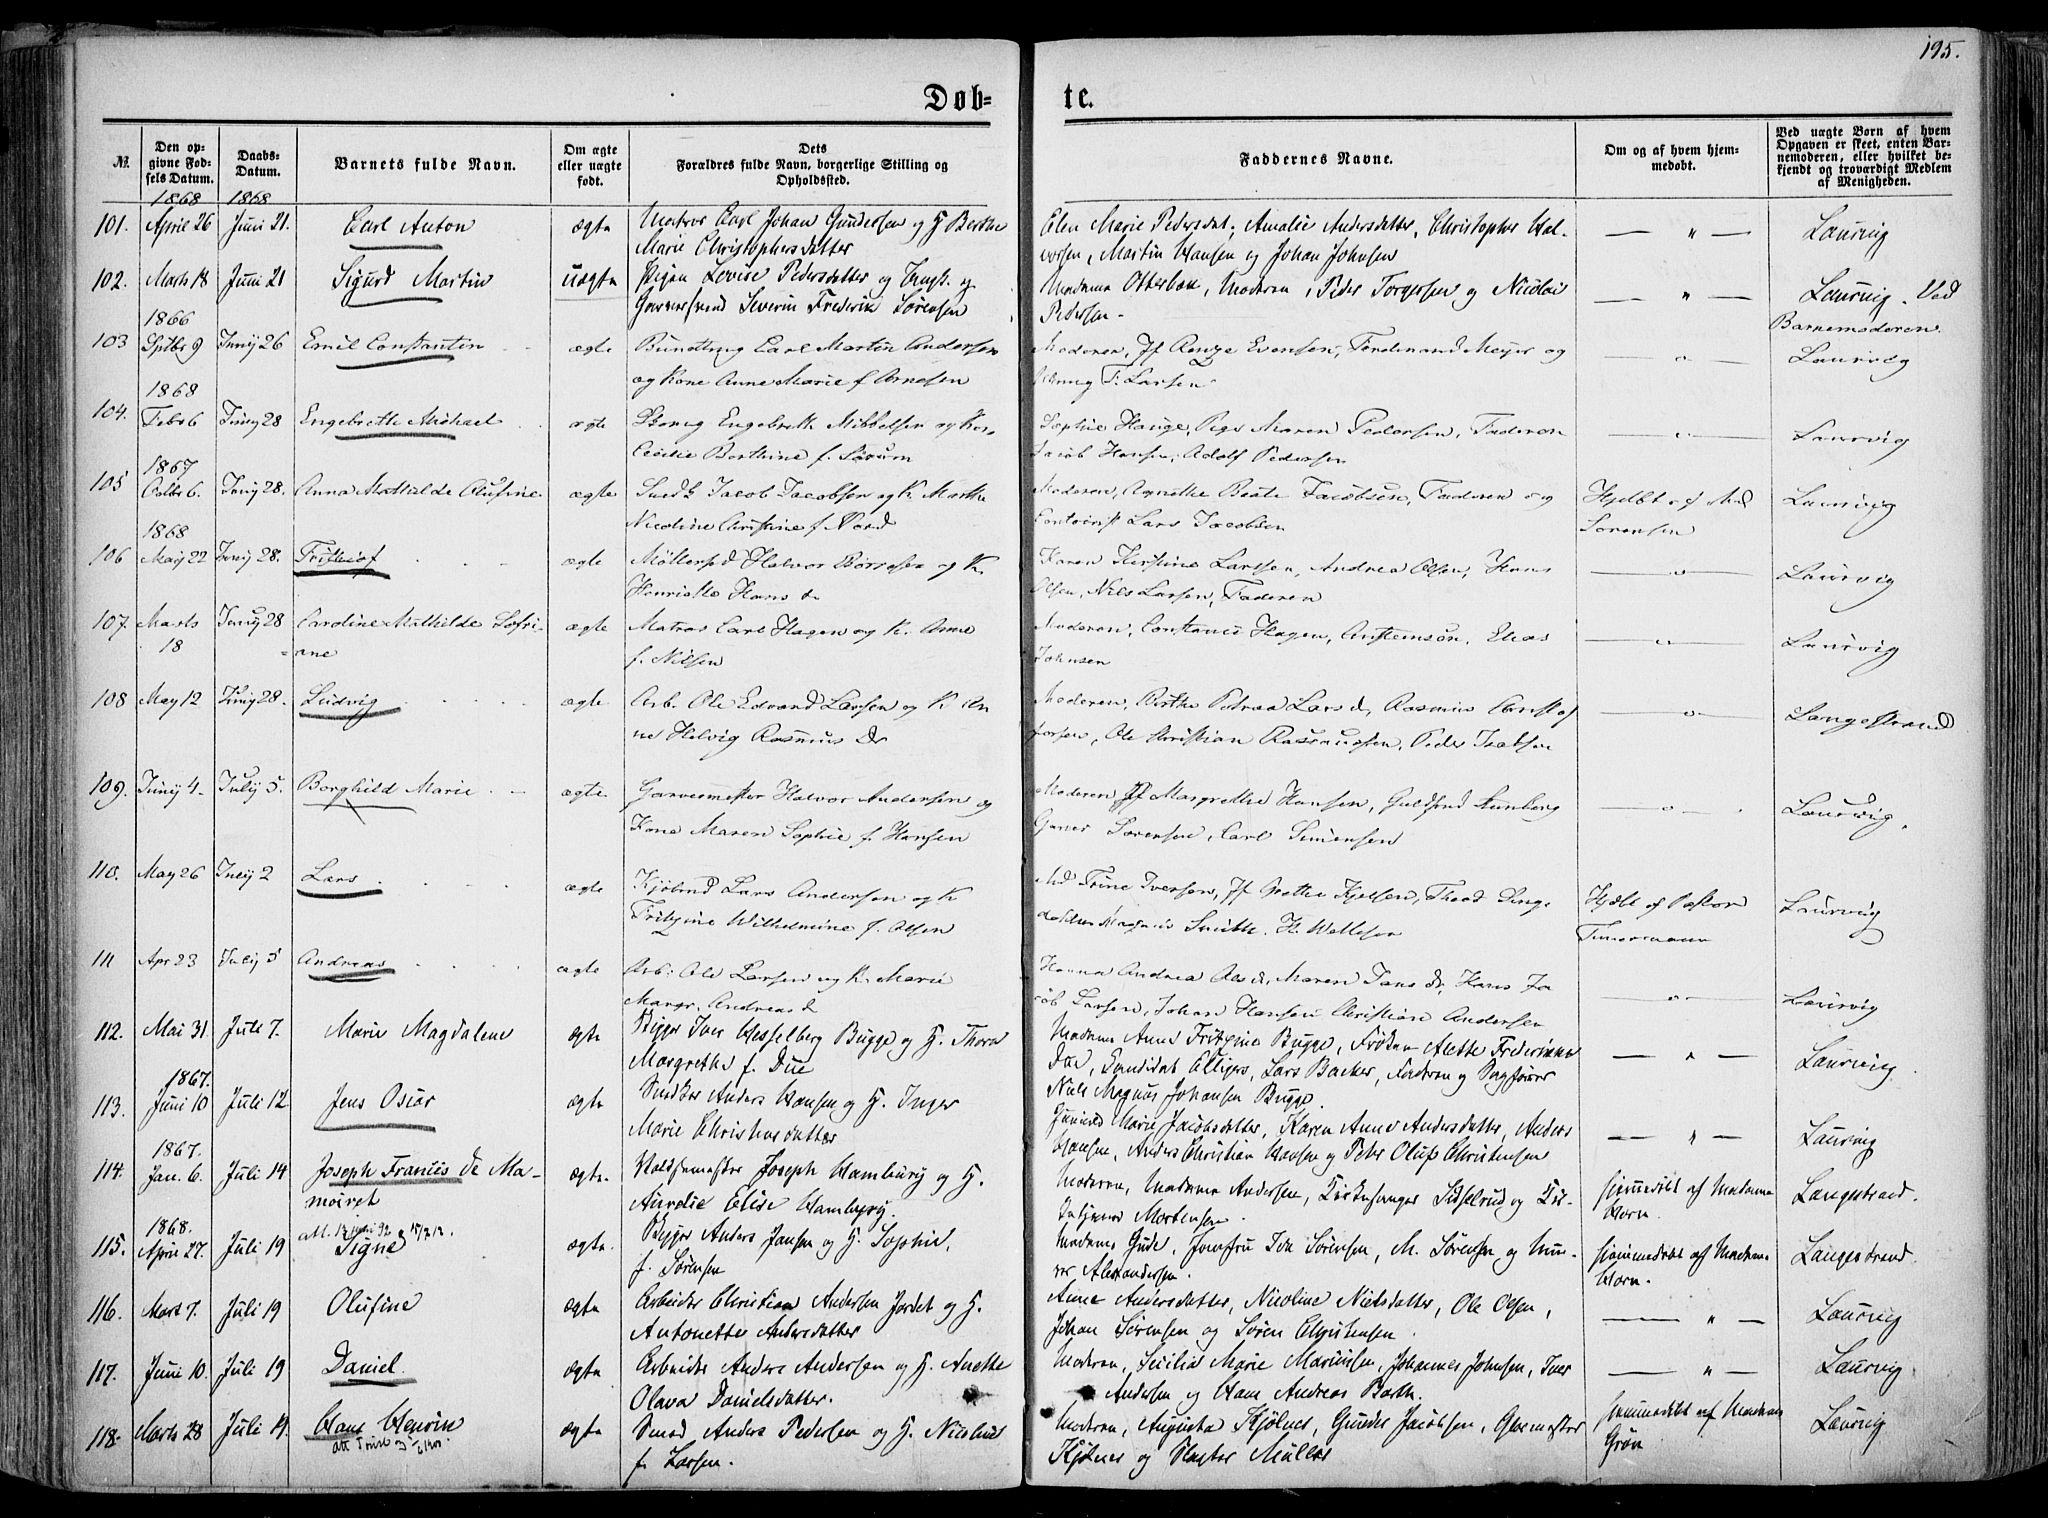 195.
Døb= te.
№.
Den op-
givne Fød-
sels Datum.
Daabs-
Datum.
Barnets fulde Navn.
Om ægte
eller uægte
født.
Dets
Forældres fulde Navn, borgerlige Stilling og
Opholdssted.
Faddernes Navne.
Om og af hvem hjem-
medøbt.
Ved uægte Børn af hvem
Opgaven er skeet, enten Bar-
nemoderen, eller hvilket be-
kjendt og troværdigt Medlem
af Menigheden.
1868 1868
101. April 26 Juni 21. Carl Anton ægte Matros Carl Johan Gundersen og H. Berthe Elen Marie Pedersdat., Amalie Andersdatter, Christopher Hal- — " — Laurvig
Marie Christophersdatter vorsen, Martin Hansen og Johan Johnsen
102. Marts 18 Juni 21 Sigurd Martin uægte Pigen Lovise Pedersdatter og Madame Otterbeck, Moderen, Peder Torgersen og Nicolai — " — Laurvig. Ved
Severin Frederik Sørensen Pedersen Barnemoderen.
1866
103 Sptbr 9 Junij 26 Emil Constantin ægte Carl Martin Andersen Moderen, Jf Evensen, Ferdinand Meyer og — " — Laurvig
og Kone Anne Marie f. Arnesen T. Larsen
1868
104. Febr 6 Junij 28 Engebrette Michael ægte Engebreth Mikkelsen og Kone Sophie Hauge, Pige Maren Pedersen, Faderen — " — Laurvig
Cecilie Berthine f. Jacob Hansen, Adolf Pedersen
1867
105 Octbr 6. Junij 28. Anna Mathilde Olufine ægte Snedk Jacob Jacobsen og K. Marthe Moderen, Agnethe Beate Jacobsen, Faderen og Hjdbt af Md Laurvig
Nicoline Christine f. Nord Contorist Lars Jacobsen Sørensen
1868
106 May 22 Junij 28. Frithiof ægte Møllersvd Halvor og K. Karen Kirstine Larsen, Andrea Olsen, Hans — " — Laurvig
Henriette Hans d. Olsen, Nils Larsen, Faderen
107. Marts Junij 28 Caroline Mathilde Sofi- ægte Matros Carl Hagen og K. Anne Moderen, Constance Hagen, Elias — " — Laurvig
18 ane f. Nilsen Johnsen
108 May 12 Junij 28. Ludvig ægte Arb. Ole Edvard Larsen og K. An Moderen, Berthe Petrea Lars d, Rasmus Christof — " — Langestrand
ne Helvig Rasmus Dr forsen, Ole Christian Rasmussen, Peder Isaksen
109. Junij 4. Julij 5. Borghild Marie ægte Garvermester Halvor Andersen og Moderen Jf Margrethe Hansen, — " — Laurvig.
Kone Maren Sophie f. Hansen Garver Sørensen, Carl Simensen
110. May 26 Julij 2 Lars ægte Kjøbmd Lars Andersen og K Md Trine Iversen, Jf Kjelsen, Hjdbt af Pastor Laurvig
Fritzine Wilhelmine f. Olsen Smith. H. Wellesen Timermann
111 Apr 23 Julij 5 Andreas ægte Arb. Ole Larsen og K. Marie Hanna Andrea Ols d, Maren Jans dr, Hans Ja — " — Laurvig
Margr. Andreas d cob Larsen, Johan Hansen Christian Andersen
112. Mai 31. Juli 7. Marie Magdalene ægte Iver Hesselberg Bugge og H. Thora Madame Anne Fritzine Bugge, Frøken Alette Frederikke — " — Laurvig
Margrethe f. Due Due, Candidat Lars Backer, Faderen og Sagfører
1867. Niels Magnus Johansen Bugge.
113. Juni 10 Juli 12. Jens Oscar ægte Snedker Anders Hansen og H. Inger Gunild Marie Jacobsdatter, Karen Anne Andersdatter, Anders — " — Laurvig
Marie Christensdatter Hansen, Anders Christian Hansen og Peter Oluf Christensen
1867.
114. Jan. 6. Juli 14 Joseph Francis de Ma- ægte. Joseph Hamburg og H. Moderen, Madame Andersen, Kirkesanger og Hjemmedøbt af Madame Langestrand.
moiret Aurelie Elise Hamburg. Mortensen. Horn.
1868.
115. April 27. Juli 19 Signe ægte. Anders Jansen og H. Sophie, Madame Gude, Jomfru Ida Sørensen, M. Sørensen og Hjemmedøbt af Madame Langestrand.
f. Sørensen Alexandersen. Horn.
116. Mart 7. Juli 19 Olufine ægte Arbeider Christian Andersen Jordet og H. Anne Andersdatter, Nicoline Nielsdatter, Ole Olsen, — " — Laurvig
Antonette Andersdatter Johan Sørensen og Søren Christensen.
117. Juni 10. Juli 19 Daniel ægte Arbeider Anders Andersen og H. Anette Moderen, Cecilie Marie Mariussen, Johannes Johnsen, Iver — " — Laurvig
Olava Danielsdatter. Andersen og Hans Andreas Barth.
118. Marts 28 Juli 19. Hans Henrik ægte Smed Anders Pedersen og H. Nicoline Moderen, Augusta Kjølner, Gunder Jacobsen, Hjemmedøbt af Madame Laurvig
f. Larsen. Kjølnes og Müller Grøn